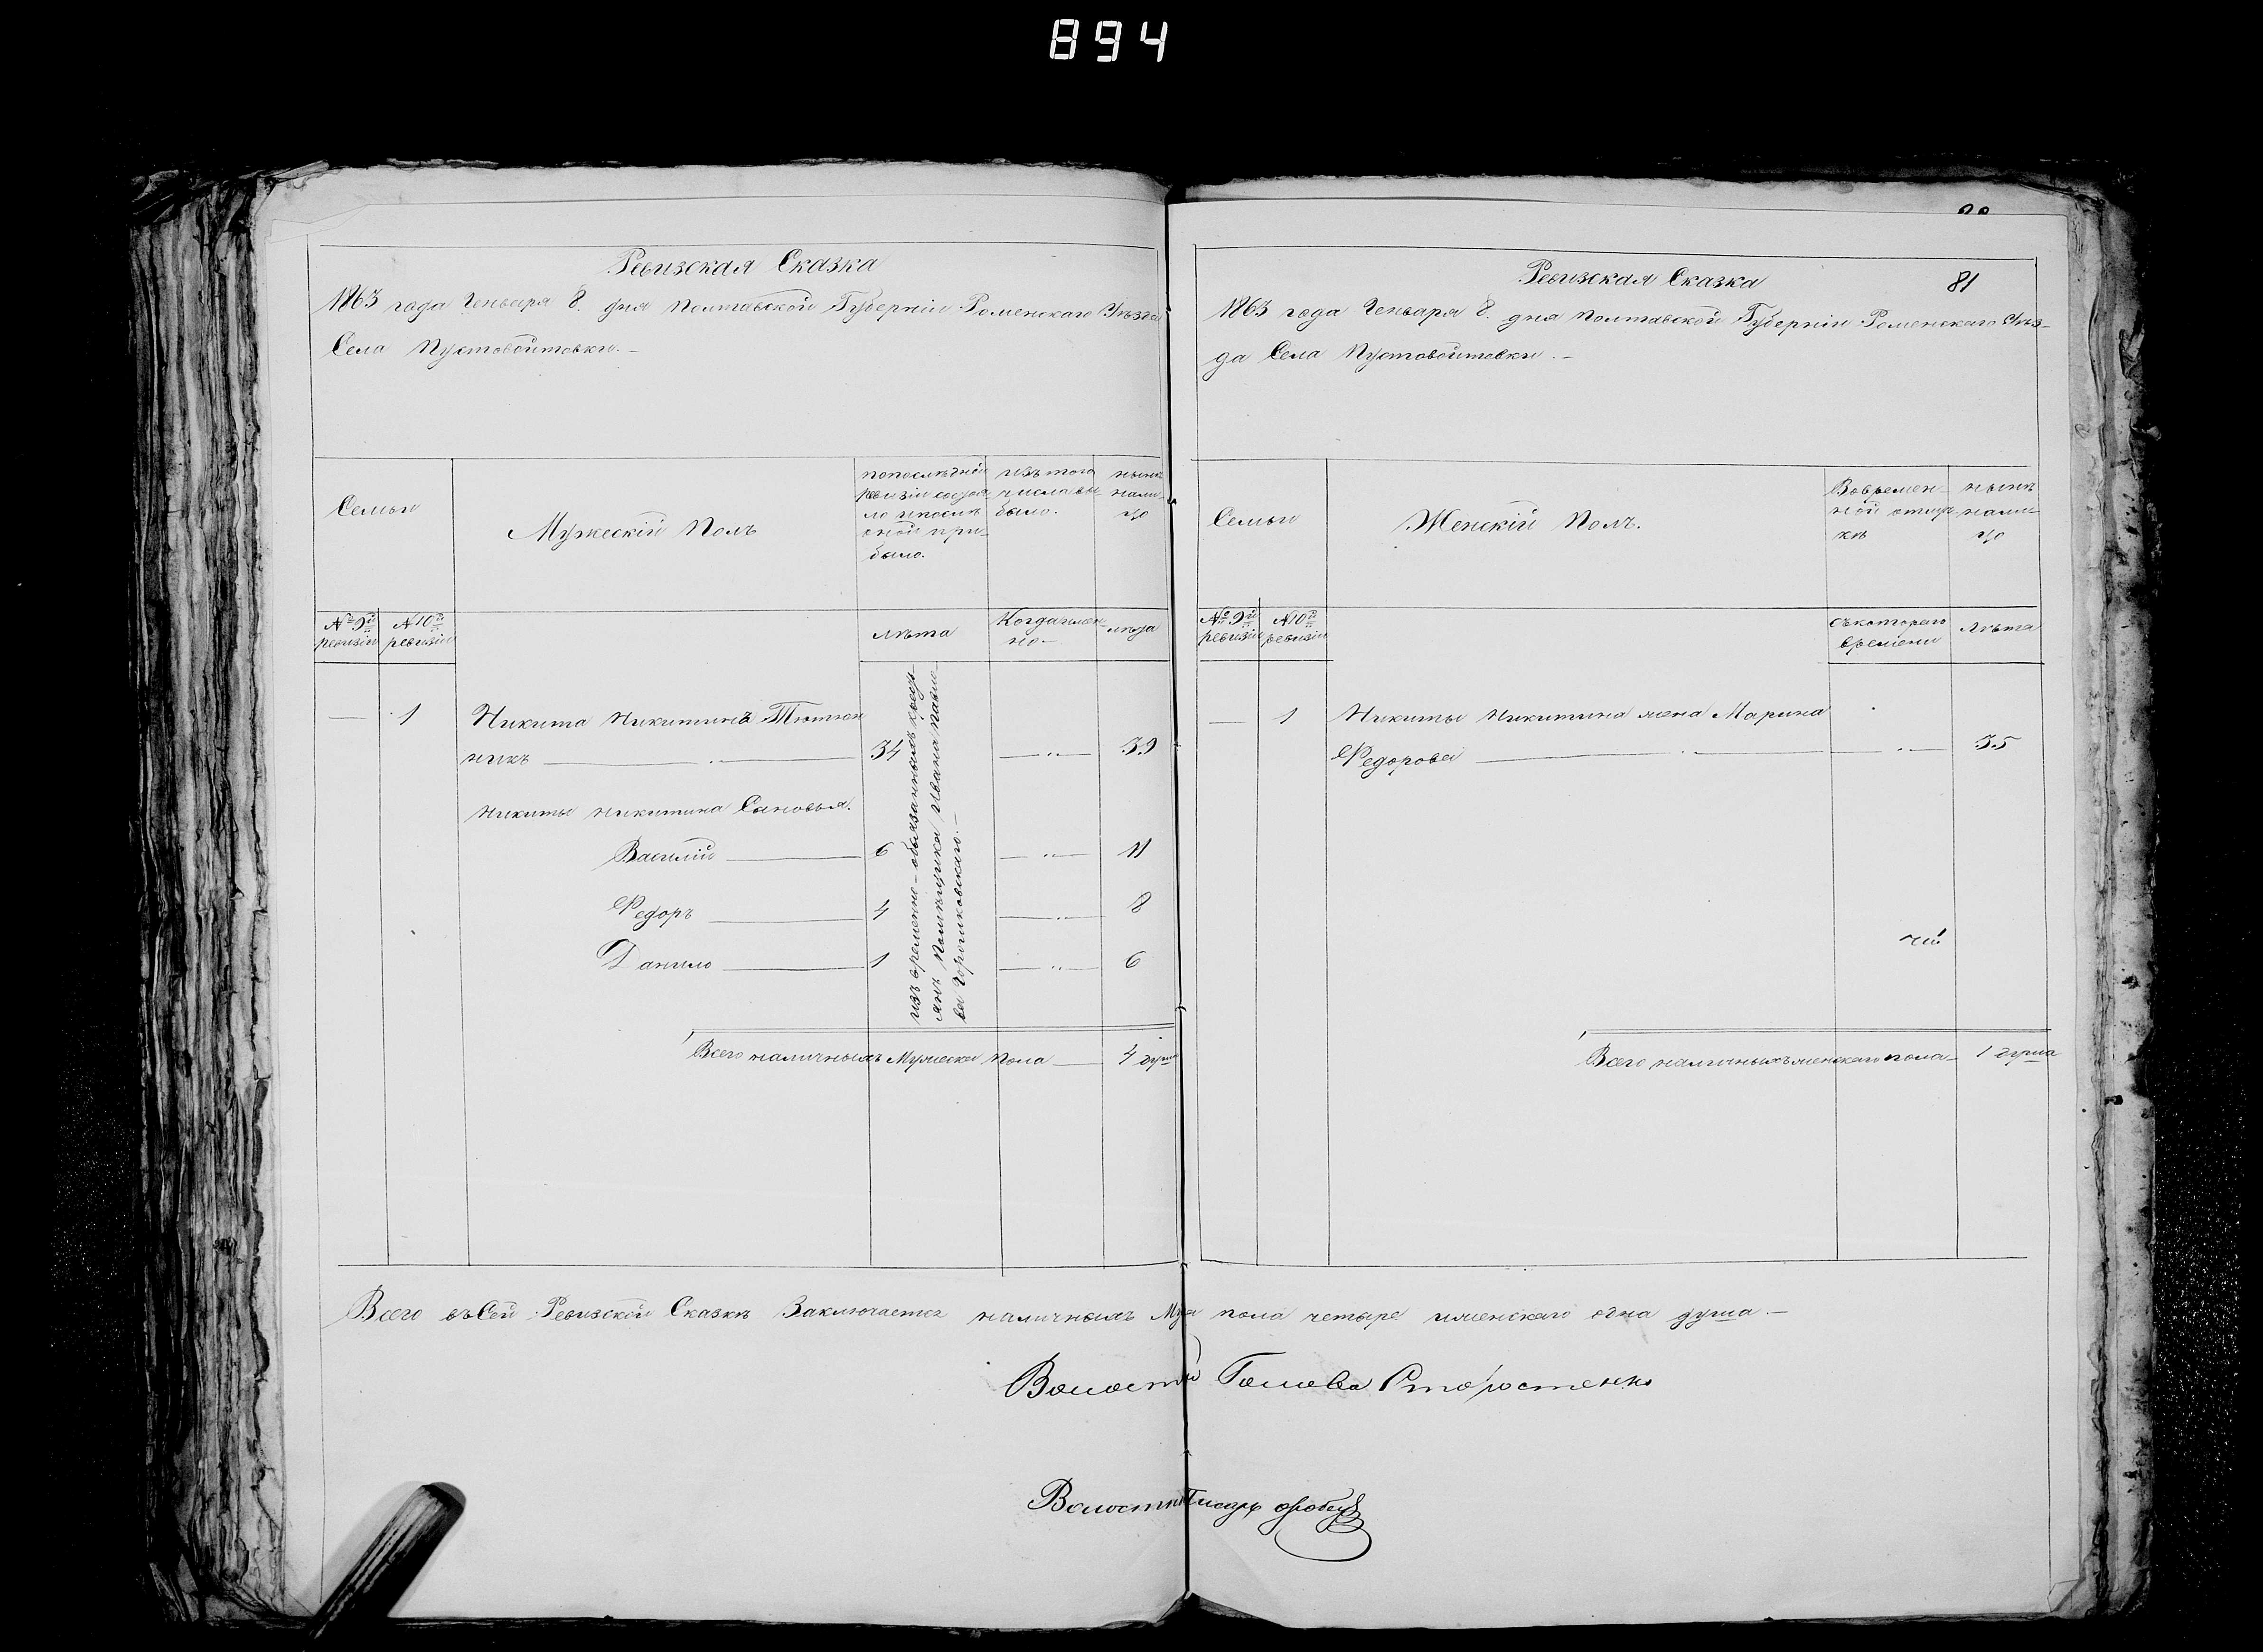 894
Ревизская Сказка
1863 года Генваря 8. дня Полтавской Губерніи Роменскаго Уѣзда
Села Пустовойтовки. –
Семьи
Мужескій Полъ
попослѣдней
ревизіи состоя-
ло ипослѣ
оной при-
было.
изъ того
числа вы-
было.
нынѣ
нали-
цо
№ 9й
ревизіи
№ 10й
ревизіи
лѣта
Когда имен-
но –
лѣта
1
Никита Никитинъ Тютюн
никъ
34
39
Никиты Никитина Сыновья.
Василій 6 11
Федоръ 4 8
Данило 1 6
изъ временно-обязанныхъ крестья-
янъ Помѣщика Ивана Павло-
ва
Всего наличныхъ Мужеска Пола 4 душ
Ревизская Сказка
81
1863 года Генваря 8. дня Полтавской Губерніи Роменскаго Уѣз-
да Села Пустовойтовки. –
Семьи
Женскій Полъ.
Вовремен-
ной отлуч-
кѣ
нынѣ
нали-
цо
№ 9й
ревизіи
№ 10й
ревизіи
съкотораго
времени
Лѣта
1
Никиты Никитина жена Марина
Федорова
35
Всего наличныхъ женскаго пола – 1 душа
Всего въ Сей Ревизской Сказкѣ Заключается наличныхъ Муж пола четыре иженскаго одна душа. –
Волостный Голова
Волостный Писарь